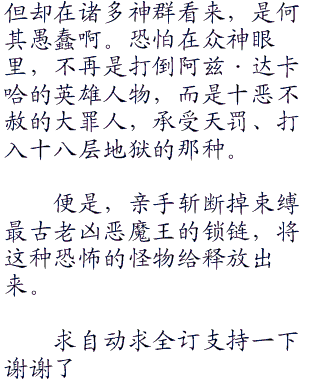 但却在诸多神群看来，是何
其愚蠢啊。恐怕在众神眼
里，不再是打倒阿兹·达卡
哈的英雄人物，而是十恶不
赦的大罪人，承受天罚、打
入十八层地狱的那种。
便是，亲手斩断掉束缚
最古老凶恶魔王的锁链，将
这种恐怖的怪物给释放出
来。
求自动求全订支持一下
谢谢了